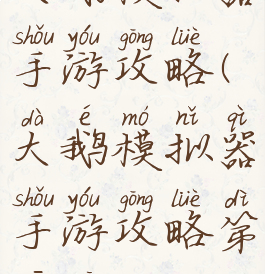 shǒu yóu gōng lüè
手游攻略(
dà é mó nǐ qì
大鹅模拟器
shǒu yóu gōng lüè dì
手游攻略第